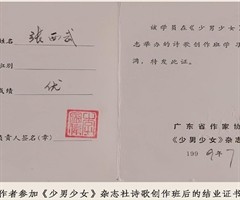 姓名 张西武
组别
成绩 优
负责人签名(章)
该学员在《少男少女》杂
志举办的诗歌创作班学
满,特发此证。
广东省作家协
《少男少女》杂志
199 年7
作者参加《少男少女》杂志社诗歌创作班后的结业证书